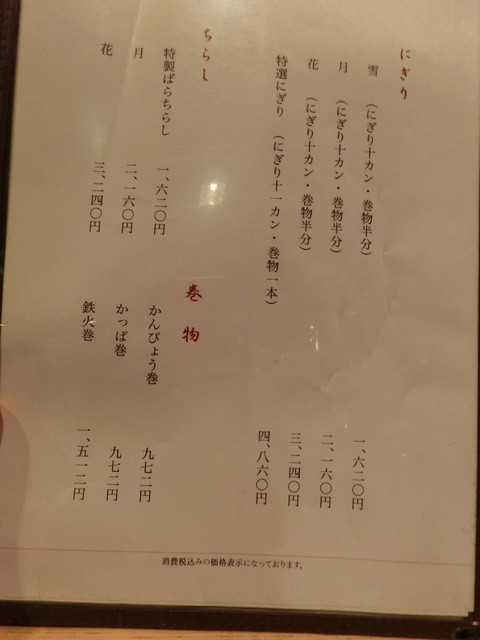 にぎり
雪　（にぎり十カン・巻物半分）　一、六二〇円
月　（にぎり十カン・巻物半分）　二、一六〇円
花　（にぎり十カン・巻物半分）　三、二四〇円
特選にぎり　（にぎり十一カン・巻物一本）　四、八六〇円
ちらし
特製ばらちらし　一、六二〇円
月　二、一六〇円
花　三、二四〇円
巻物
かんぴょう巻　九七二円
かっぱ巻　九七二円
鉄火巻　一、五一二円
消費税込みの価格表示になっております。